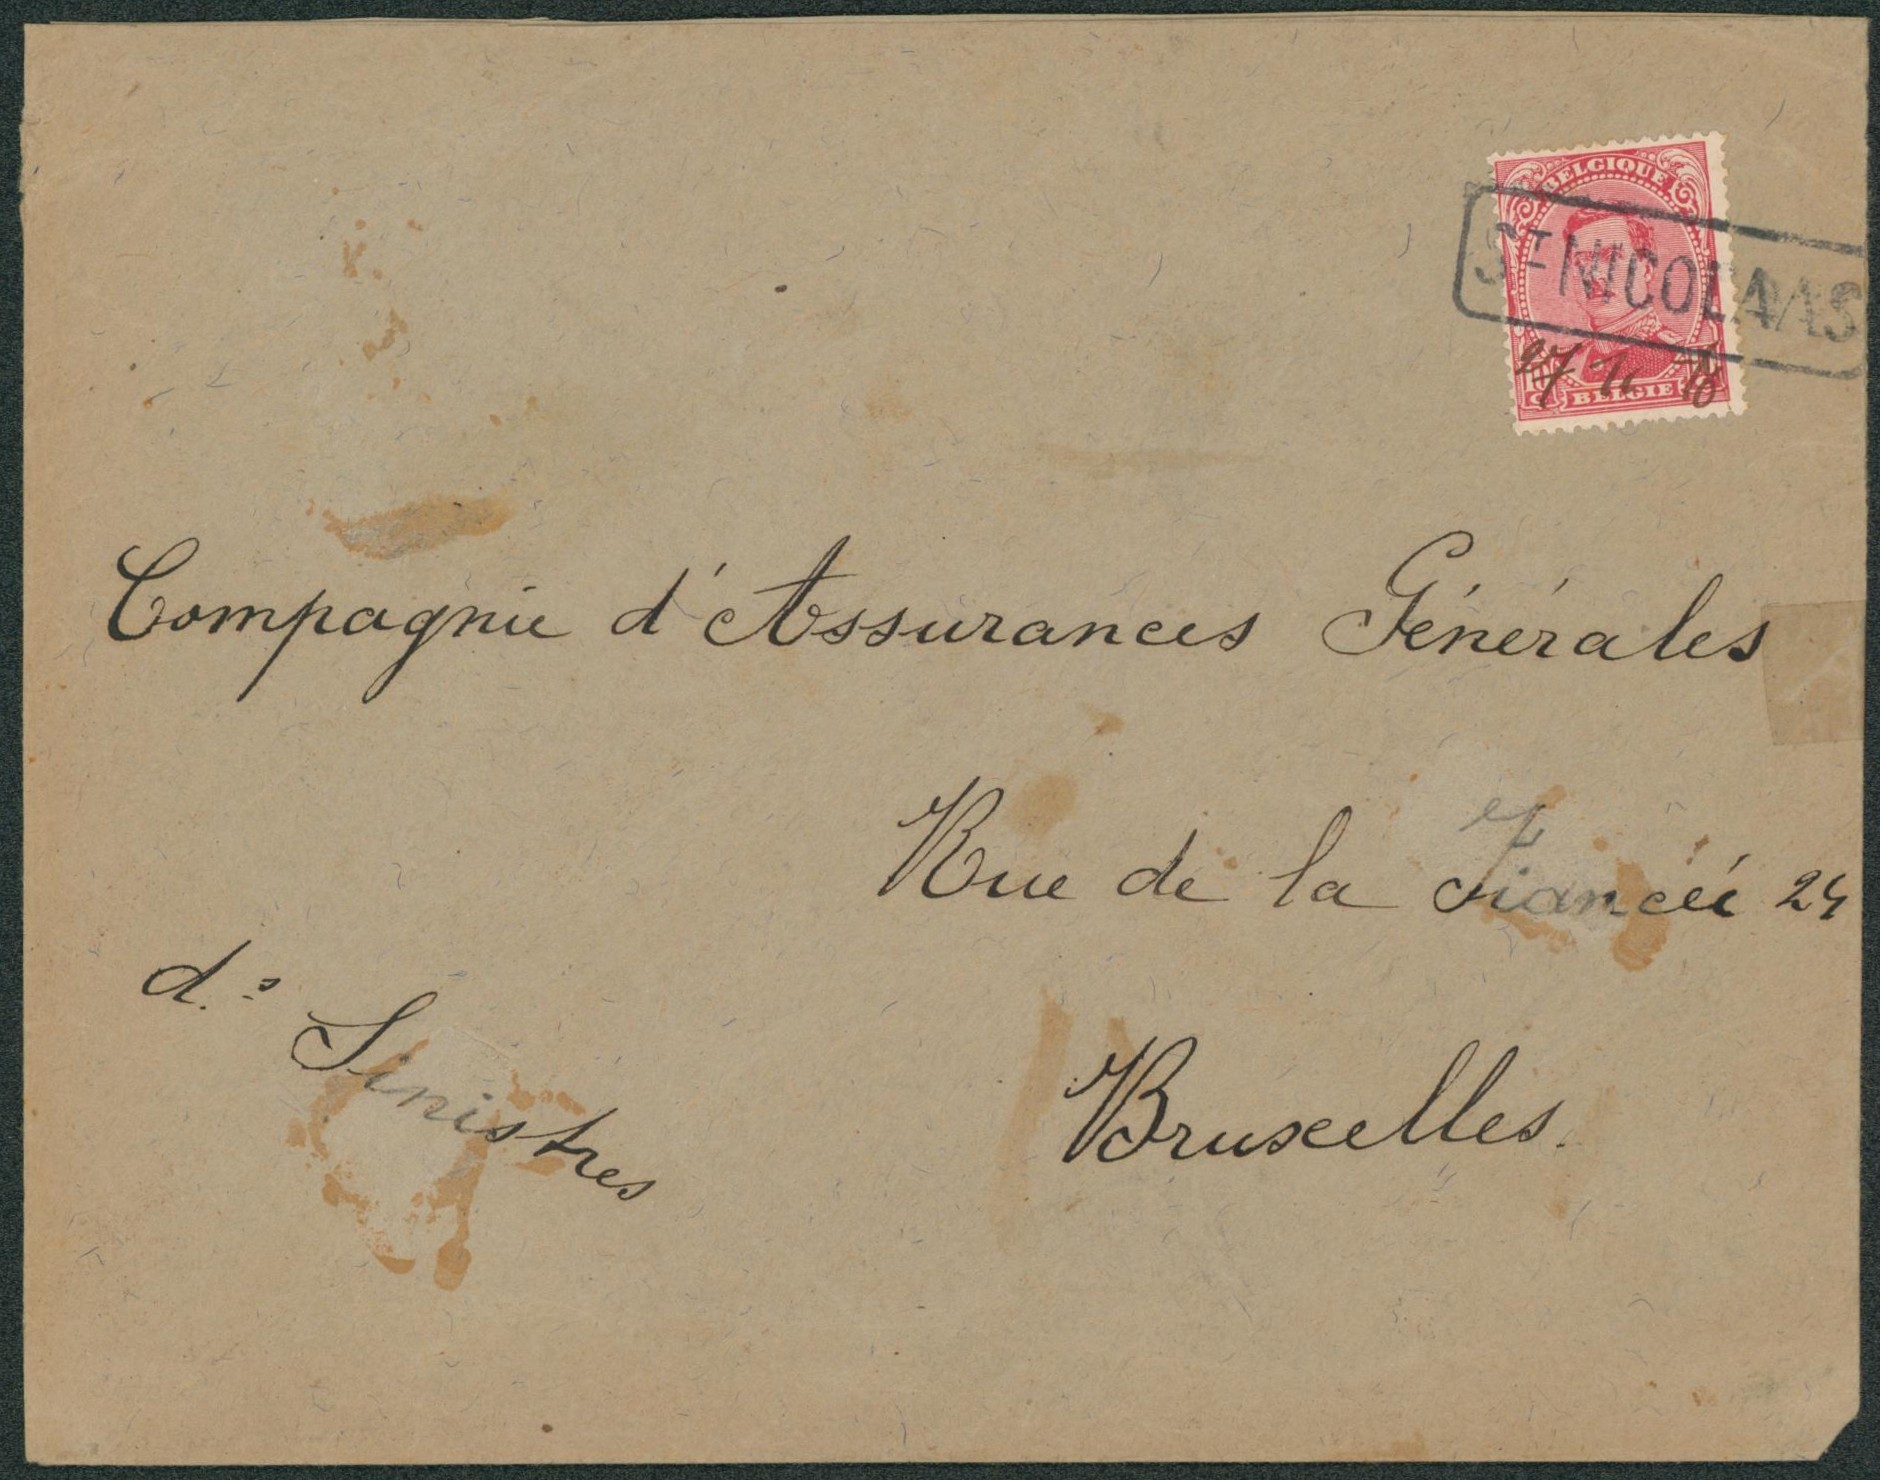 BELGIQUE
ST NICOLAAS
27 11 18
BELGIE
Compagnie d'Assurances Générales
Rue de la Fiancée 24
d.s Sinistres
Bruxelles.